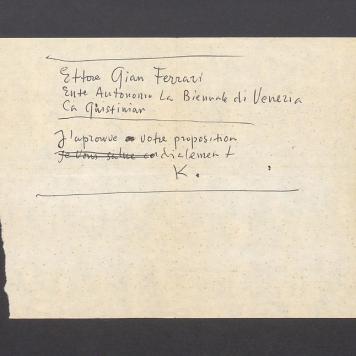 Ettore Gian Ferrari
Ente Autonomo La Biennale di Venezia
Ca Giustinian
J'aprouve votre proposition
Je vous salue cordialement
K.